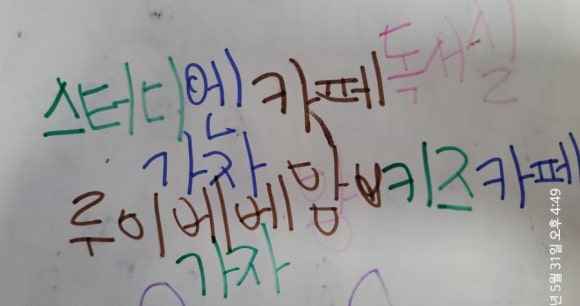 스터디에 카페 독서실
가자
루이베베 키즈카페
가자
년 5월 31일 오후 4:49